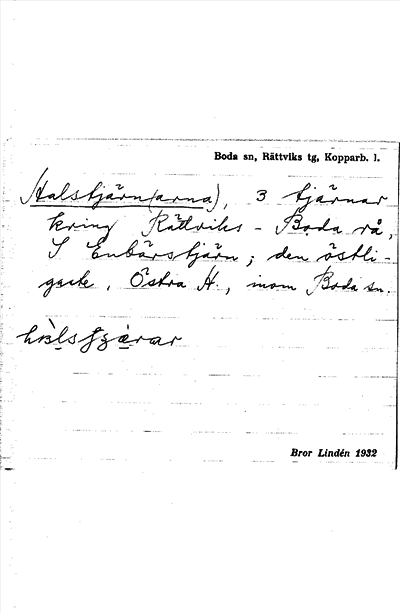 Boda sn, Rättviks tg, Kopparb. l.
Halstjärn(arna), 3 tjärnar
kring Rättviks - Boda rå,
S Enbärstjärn; den östli-
gaste, Östra H., inom Boda sn.
Bror Lindén 1932